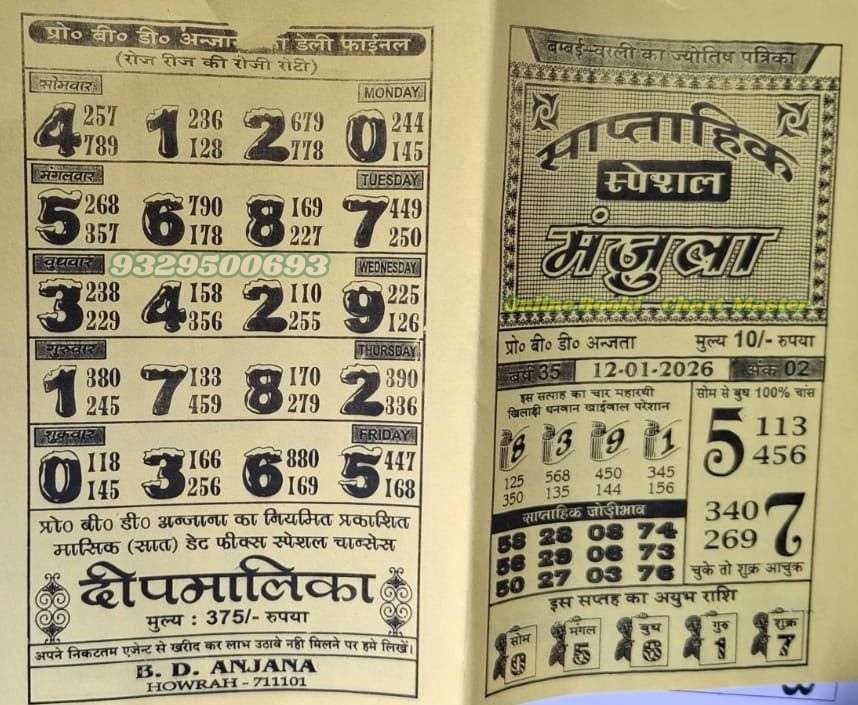 प्रो० बी० डी० अन्जा डेली फाईनल
(रोज रोज की रोजी रोटी)
सोमवार MONDAY
4 257 789 1 236 128 2 679 778 0 244 145
मंगलवार TUESDAY
5 268 357 6 790 178 8 169 227 7 449 250
बुधवार 9329500693 WEDNESDAY
3 238 229 4 158 356 2 110 255 9 225 126
गुरुवार THURSDAY
1 380 245 7 133 459 8 170 279 2 390 336
शुक्रवार FRIDAY
0 118 145 3 166 256 6 880 169 5 447 168
प्रो० बी० डी० अन्जाना का नियमित प्रकाशित
मासिक (सात) डेट फीक्स स्पेशल चान्सेस
दीपमालिका
मुल्य : 375/- रुपया
अपने निकटतम एजेन्ट से खरीद कर लाभ उठावे नही मिलने पर हमे लिखें।
B. D. ANJANA
HOWRAH - 711101
बम्बई-वरली का ज्योतिष पत्रिका
साप्ताहिक
स्पेशल
मंजुला
Chart Master
प्रो० बी० डी० अन्जता मुल्य 10/- रुपया
वर्ष 35 12-01-2026 अंक 02
इस सत्पाह का चार महारथी
खिलाड़ी धनवान खाईवाल परेशान
8 3 9 1
125 568 450 345
350 135 144 156
साप्ताहिक जोड़ीभाव
58 28 08 74
56 29 06 73
50 27 03 76
सोम से बुध 100% चांस
5 113
456
340 7
269
चुके तो शुक्र आचुक
इस सप्तह का अयुभ राशि
सोम मंगल बुध गुरु शुक्र
0 5 6 1 7